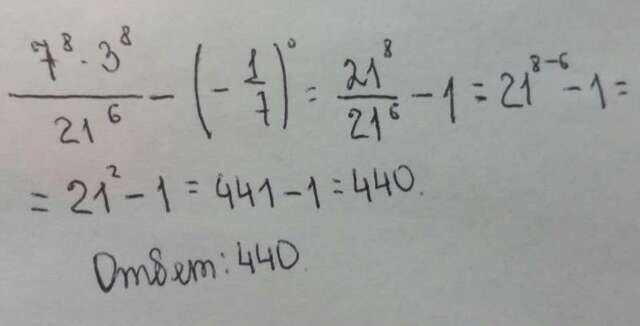 7⁸ · 3⁸ / 21⁶ − (− 1/7)⁰ = 21⁸ / 21⁶ − 1 = 21⁸⁻⁶ − 1 =
= 21² − 1 = 441 − 1 = 440.
Ответ: 440.